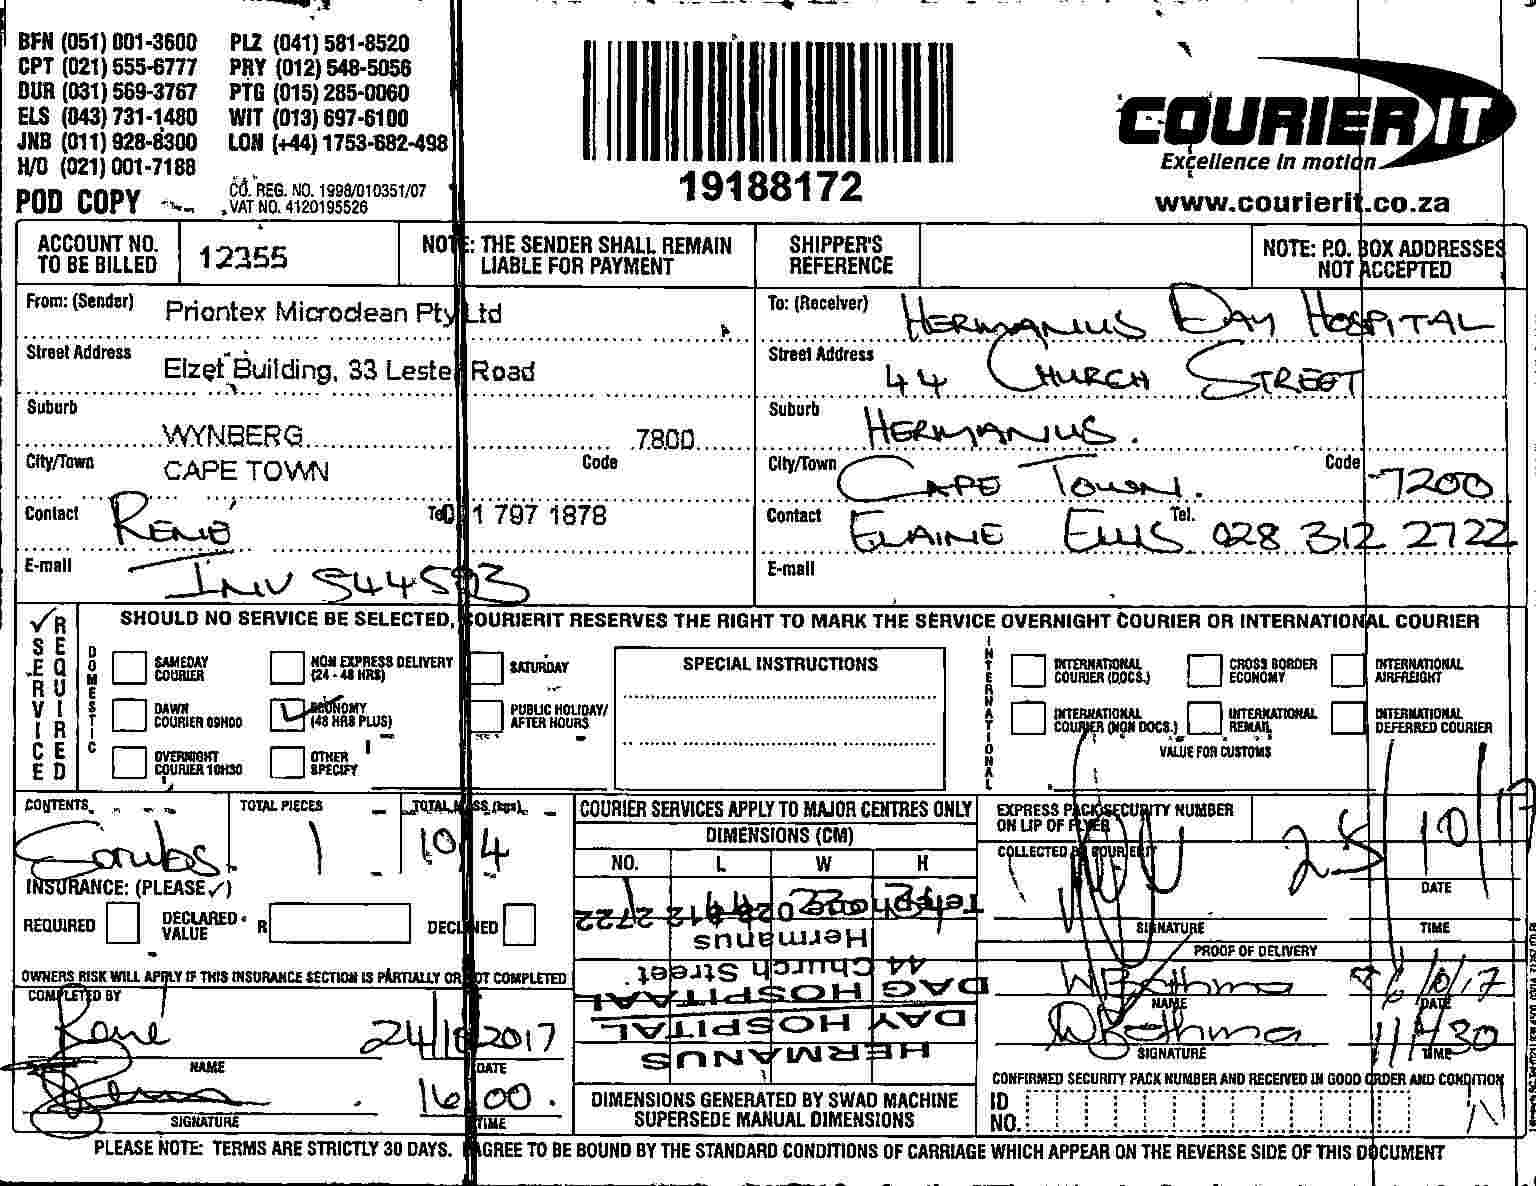 BFN (051) 001-3600 PLZ (041) 581-8520
CPT (021) 555-6777 PRY (012) 548-5056
DUR (031) 569-3767 PTG (015) 285-0060
ELS (043) 731-1480 WIT (013) 697-6100
JNB (011) 928-8300 LON (+44) 1753-682-498
H/O (021) 001-7188
POD COPY CO. REG. NO. 1998/010351/07
VAT NO. 4120195526
19188172
COURIER IT
Excellence in motion
www.courierit.co.za
ACCOUNT NO. TO BE BILLED 12355
NOTE: THE SENDER SHALL REMAIN LIABLE FOR PAYMENT
SHIPPER'S REFERENCE
NOTE: P.O. BOX ADDRESSES NOT ACCEPTED
From: (Sender) Priontex Microclean Pty Ltd
Street Address Elzet Building, 33 Lester Road
Suburb WYNBERG 7800
City/Town CAPE TOWN Code
Contact RENÉ Tel 021 797 1878
E-mail INV 544593
To: (Receiver) HERMANIUS DAY HOSPITAL
Street Address 44 CHURCH STREET
Suburb HERMANIUS.
City/Town CAPE TOWN. Code 7200
Contact ELAINE ELLIS Tel. 028 312 2722
E-mail
✓ SERVICE REQUIRED
SHOULD NO SERVICE BE SELECTED, COURIERIT RESERVES THE RIGHT TO MARK THE SERVICE OVERNIGHT COURIER OR INTERNATIONAL COURIER
DOMESTIC
SAMEDAY COURIER
NON EXPRESS DELIVERY (24 - 48 HRS)
SATURDAY
DAWN COURIER 09H00
✓ ECONOMY (48 HRS PLUS)
PUBLIC HOLIDAY/ AFTER HOURS
OVERNIGHT COURIER 10H30
OTHER SPECIFY
SPECIAL INSTRUCTIONS
INTERNATIONAL
INTERNATIONAL COURIER (DOCS.)
CROSS BORDER ECONOMY
INTERNATIONAL AIRFREIGHT
INTERNATIONAL COURIER (NON DOCS.)
INTERNATIONAL REMAIL
INTERNATIONAL DEFERRED COURIER
VALUE FOR CUSTOMS
CONTENTS
TOTAL PIECES 1
TOTAL MASS (kgs) 10,4
INSURANCE: (PLEASE ✓)
REQUIRED DECLARED VALUE R DECLINED
OWNERS RISK WILL APPLY IF THIS INSURANCE SECTION IS PARTIALLY OR NOT COMPLETED
COMPLETED BY
René 24/10/2017
NAME DATE
16:00.
SIGNATURE TIME
COURIER SERVICES APPLY TO MAJOR CENTRES ONLY
DIMENSIONS (CM)
NO. L W H
HERMANUS
DAY HOSPITAL
DAG HOSPITAAL
44 Church Street
Hermanus
Telephone 028 312 2722
DIMENSIONS GENERATED BY SWAD MACHINE SUPERSEDE MANUAL DIMENSIONS
EXPRESS PACK SECURITY NUMBER ON LIP OF FLYER
COLLECTED BY COURIERIT
25/10/17
DATE
SIGNATURE TIME
PROOF OF DELIVERY
W Bothma 10/17
NAME DATE
W Bothma 11/30
SIGNATURE TIME
CONFIRMED SECURITY PACK NUMBER AND RECEIVED IN GOOD ORDER AND CONDITION
ID NO.
PLEASE NOTE: TERMS ARE STRICTLY 30 DAYS. I AGREE TO BE BOUND BY THE STANDARD CONDITIONS OF CARRIAGE WHICH APPEAR ON THE REVERSE SIDE OF THIS DOCUMENT